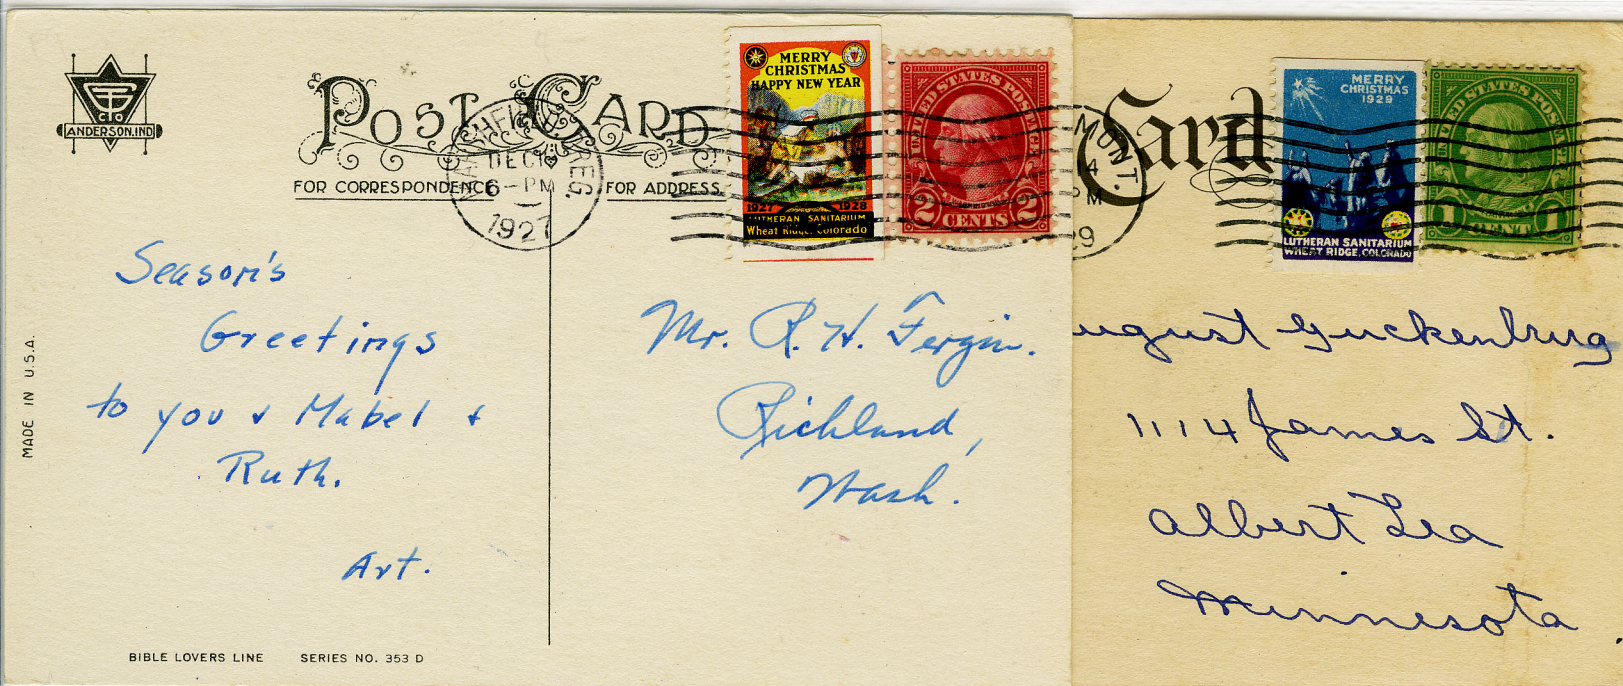 GTC
ANDERSON, IND
POST CARD
FOR CORRESPONDENCE
FOR ADDRESS
MARSHFIELD OREG.
DEC
6 - PM
1927
MERRY
CHRISTMAS
HAPPY NEW YEAR
1927 1928
LUTHERAN SANITARIUM
Wheat Ridge, Colorado
UNITED STATES POSTAGE
2 CENTS 2
MADE IN U.S.A.
Season's
Greetings
to you & Mabel &
Ruth.
Art.
Mr. R. H. Fergin.
Richland,
Wash.
BIBLE LOVERS LINE SERIES NO. 353 D
Card
MONT.
4
PM
29
MERRY
CHRISTMAS
1929
LUTHERAN SANITARIUM
WHEAT RIDGE, COLORADO
UNITED STATES POSTAGE
1 CENT 1
ugust Guckenbrug
1114 James St.
Albert Lea
Minnesota